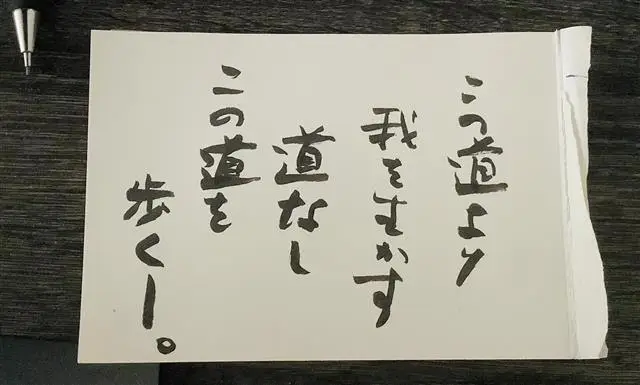 この道より
我を生かす
道なし
この道を
歩くー。